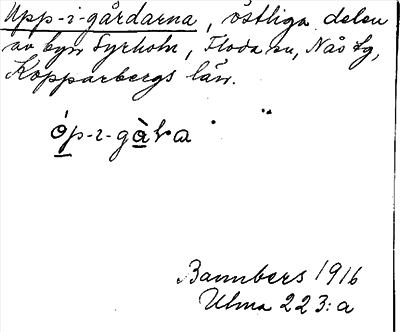 Upp-i-gårdarna, östliga delen
av byn Syrholn, Floda sn, Nås tg,
Kopparbergs län.
óp-ı-gàka
Bannbers 1916
Ulma 223:a